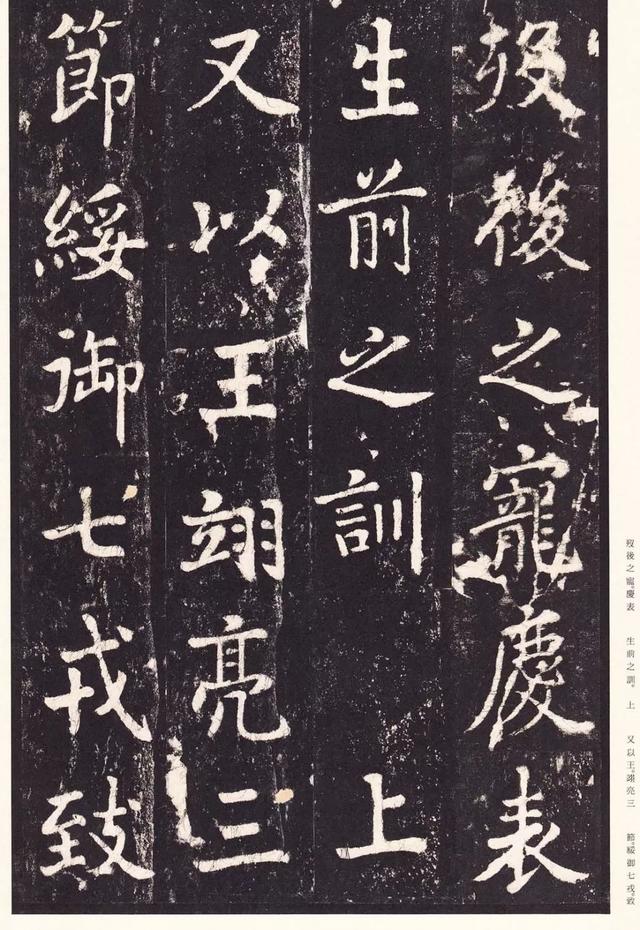 歿後之寵慶表
生前之訓　上
又以王翊亮三
節綏御七戎致
歿後之寵。慶表　生前之訓。　上　又以王。翊亮三　節。綏御七戎。致